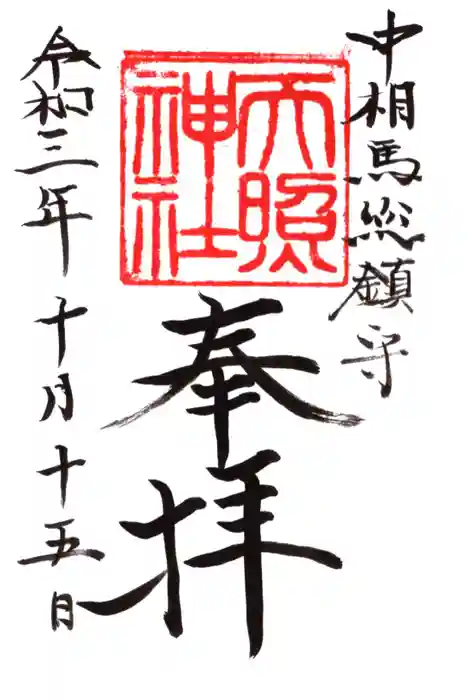 中相馬総鎮守
天照神社
奉拝
令和三年十月十五日